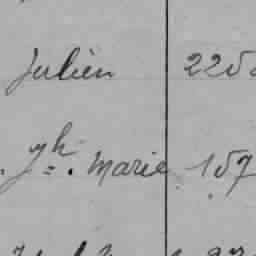 Julien 225
. Jh. Marie 157